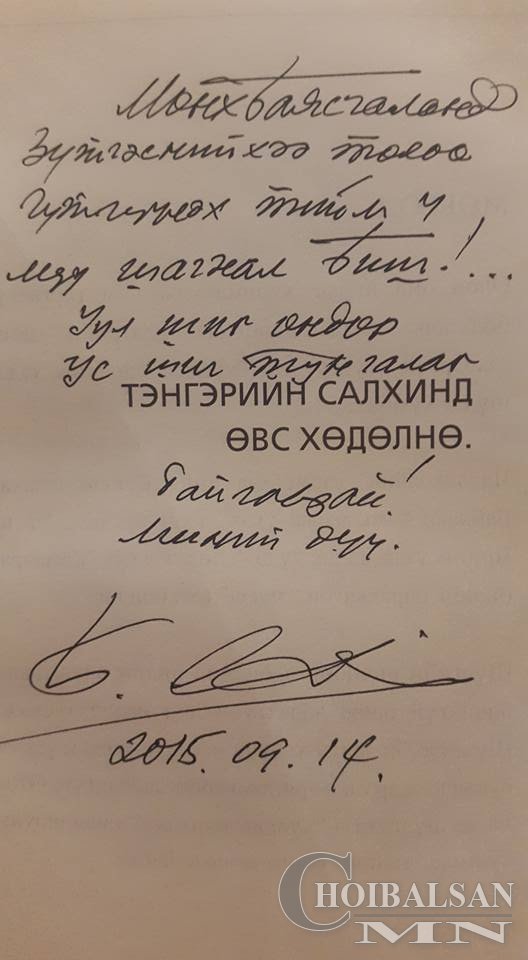 Мөнхбаясгаланд
Зүтгэснийхээ төлөө
шүтэгдэх тийм ч
шагнал биш!...
Уул шиг өндөр
Ус шиг тунгалаг
ТЭНГЭРИЙН САЛХИНД
ӨВС ХӨДӨЛНӨ.
байгаарай!
Миний дүү.
2015. 09. 14.
CHOIBALSAN
MN